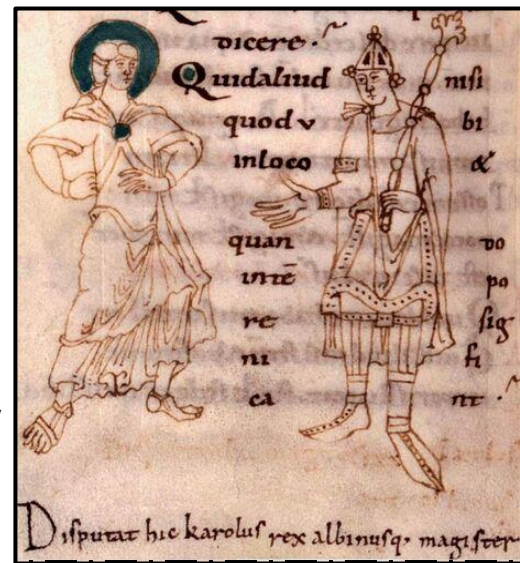 dicere·
Quidaliud nisi
quodv bi
inloco &
quan do
intē po
re sig
ni fi
ca nt·
Disputat hic karolus rex albinusq, magister